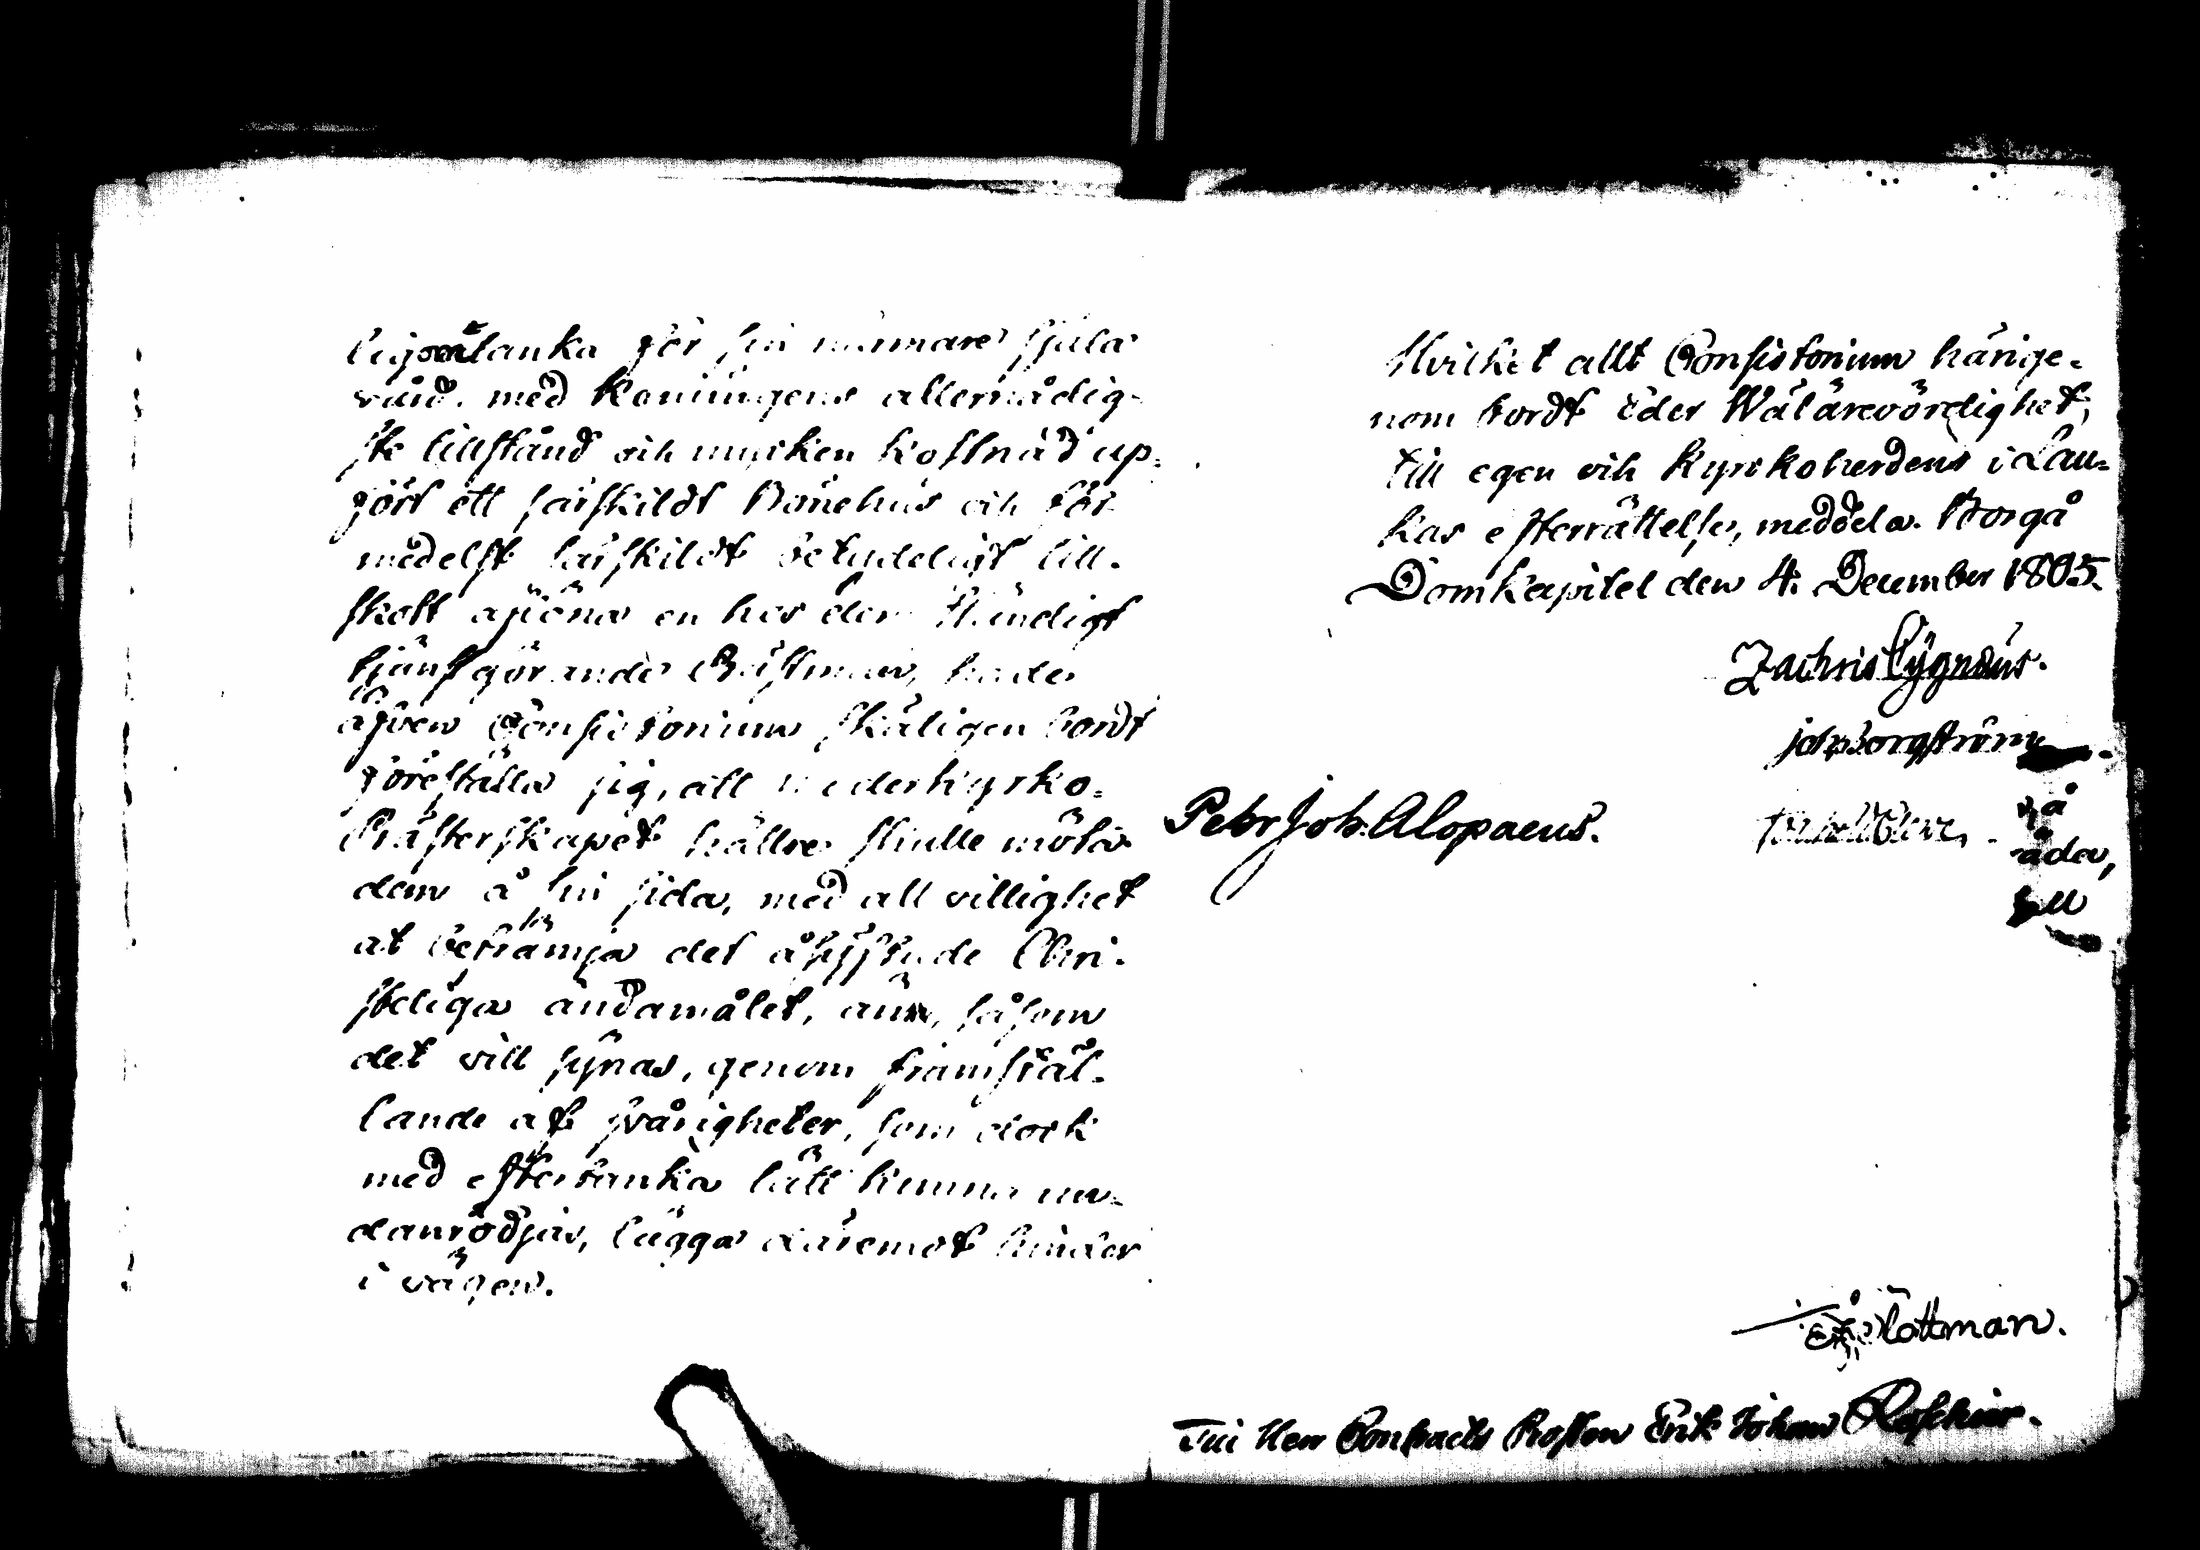 lig omtanka för sin närmare själa
vård, med Konungens allernådig-
ste tillstånd och mycken kostnad up-
fört ett särskildt Bönehus och för-
medelst särskildt betydeligt till-
skott aflöna en hos dem ständigt
tjenstgörande Prästman, hade
äfven Consistorium skäligen bordt
föreställa sig, att moderkyrko-
Prästerskapet hällre skulle möta
dem å sin sida, med all villighet
at befrämja det åsyftade Chri-
steliga ändamålet, än, såsom
det vill synas, genom framstäl-
lande af svårigheter, som dock
med eftertanka lätt kunna un-
danrödjas, lägga däremot hinder
i vägen.
Hvilket allt Consistorium härige-
nom bordt Eder Wälärevördighet,
till egen och Kyrkoherdens i Lau-
kas efterrättelse, meddela. Borgå
Domkapitel den 4. December 1805.
Zachris Cygnæus.
Joh. Borgström
Petr Joh. Alopaeus.
å
åda,
ll
Flottman.
Till Herr Contracts Prosten Erik Johan Roschier.